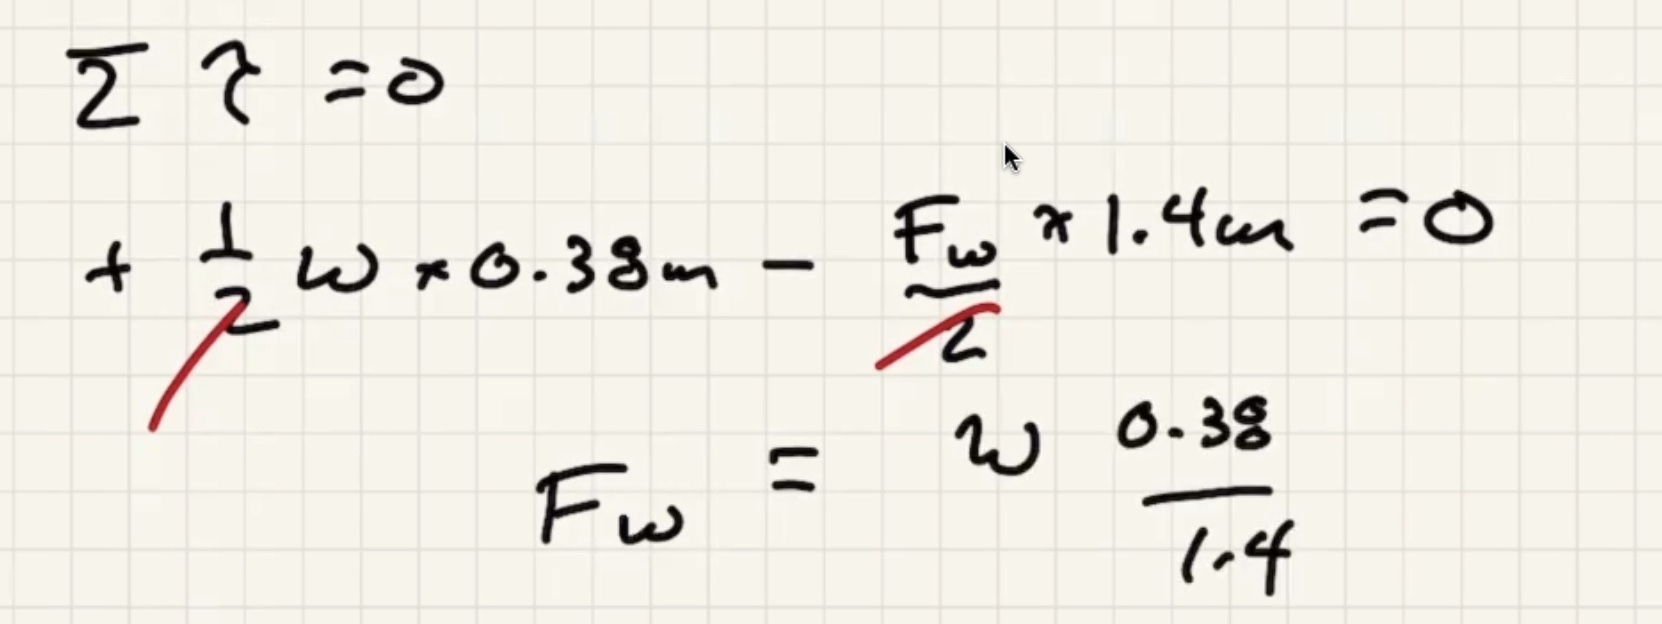 Σ τ = 0
+ 1/2 W × 0.38m − Fw/2 × 1.4m = 0
Fw = W 0.38/1.4